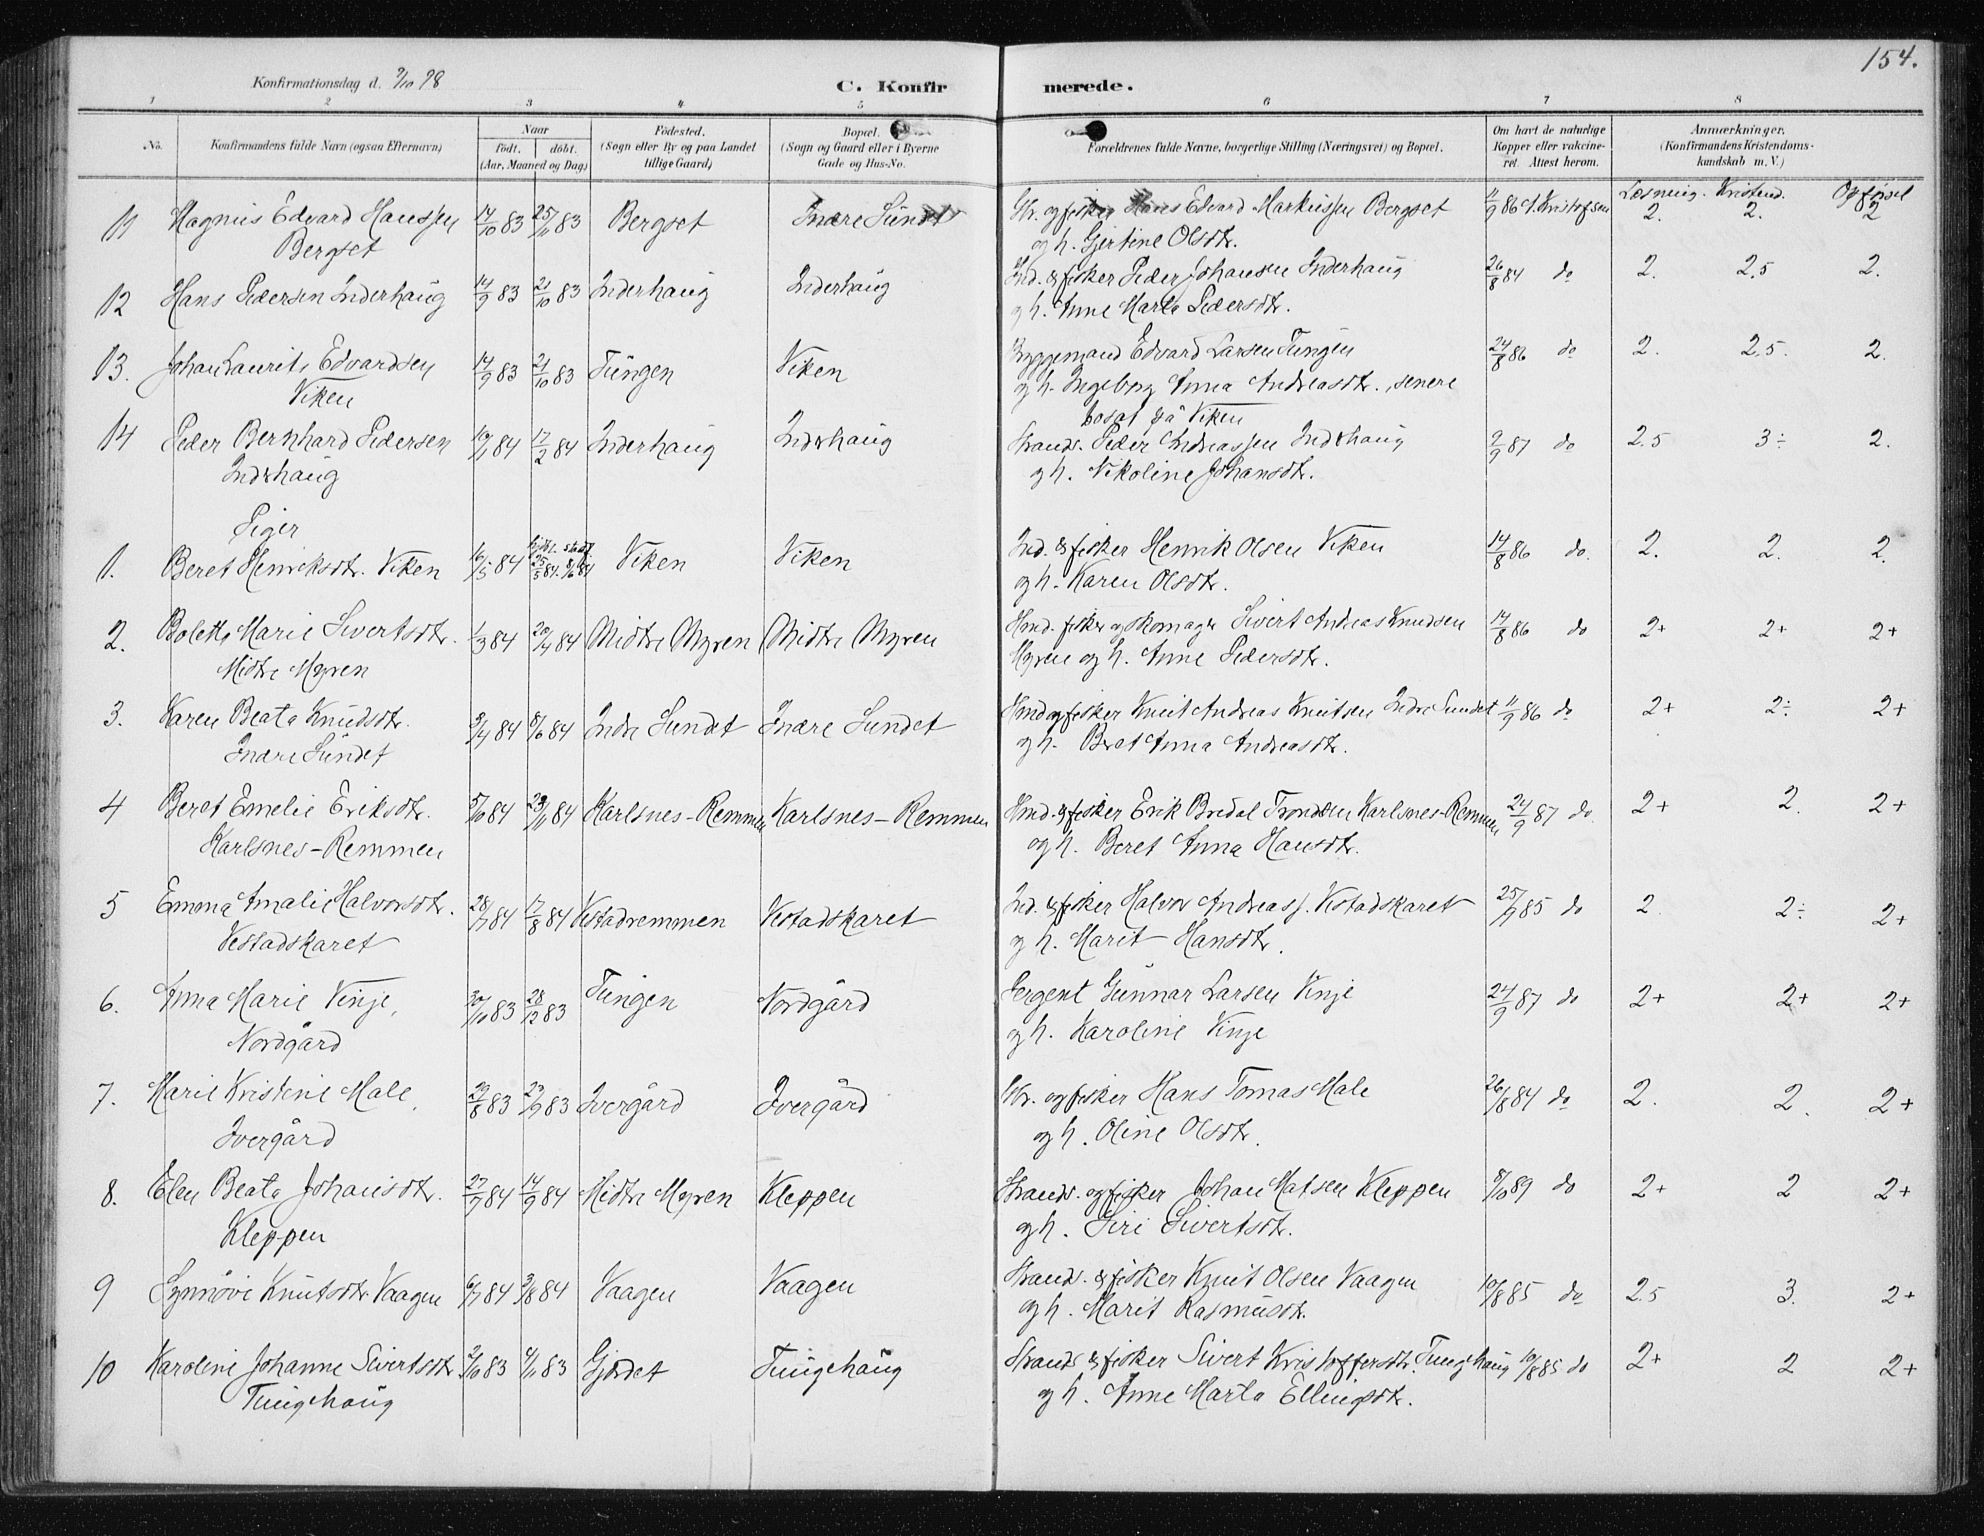 154.
Konfirmationsdag d. 9/10 98
C. Konfirmerede.
1 2 3 4 5 6 7 8
No. Konfirmandens fulde Navn (ogsaa Efternavn) Naar født. døbt. (Aar, Maaned og Dag) Fødested. (Sogn eller By og paa Landet tillige Gaard) Bopæl. (Sogn og Gaard eller i Byerne Gade og Hus-No. Forældrenes fulde Navne, borgerlige Stilling (Næringsvei) og Bopæl. Om havt de naturlige Kopper eller vakcineret. Attest herom. Anmærkninger. (Konfirmandens Kristendomskundskab m. V.)
Læsning. Kristend. Opførsel
11 Magnus Edvard Hanssen 14/10 83 25/11 83 Bergset Indre Sundet Gbr. og fisker Hans Edvard Markussen Bergset 11/9 86 A. Kristofsen 2. 2. 2
Bergset og h. Gjertine Olsdtr.
12 Hans Pedersen Inderhaug 14/9 83 21/10 83 Inderhaug Inderhaug Ind. & fisker Peder Johansen Inderhaug 26/8 84 do 2. 2.5 2.
og h. Anne Marta Pedersdtr.
13. Johan Laurits Edvardsen 14/9 83 21/10 83 Tungen Viken Byggemand Edvard Larsen Tungen 24/8 86 do 2. 2.5. 2.
Viken og h. Ingeborg Anna Andreasdtr., senere
bosat på Viken
14 Peder Bernhard Pedersen 19/1 84 17/2 84 Inderhaug Inderhaug Strands. Peder Andreassen Inderhaug 9/9 87 do 2.5 3÷ 2.
Inderhaug og h. Nikoline Johansdtr.
Piger
1. Beret Henriksdtr. Viken 16/5 84 25/5 84. 8/6 84 Viken Viken Ind. & fisker Henrik Olsen Viken 14/8 86 do. 2. 2. 2.
og h. Karen Olsdtr.
2. Bolette Marie Sivertsdtr. 1/3 84 20/4 84 Midtre Myren Midtre Myren Hmd. fisker og skomager Sivert Andreas Knudsen 14/8 86 do 2+ 2+ 2+
Midtre Myren Myren og h. Anne Pedersdtr.
3. Karen Beata Knudsdtr. 9/4 84 8/6 84 Indre Sundet Indre Sundet Hmd og fisker Knut Andreas Knutsen Indre Sundet 11/9 86 do 2+ 2÷ 2+
Indre Sundet og h. Beret Anna Andreasdtr.
4 Beret Emelie Eriksdtr. 5/10 84 23/11 84 Karlsnes-Remmen Karlsnes-Remmen Hmd. & fisker Erik Bredal Trondsen Karlsnes-Remmen 24/9 87 do 2+ 2. 2+
Karlsnes-Remmen og h. Beret Anna Hansdtr.
5 Emma Amalie Halvorsdtr. 28/7 84 17/8 84 Vestadremmen Vestadskaret Ind. & fisker Halvor Andreass. Vestadskaret 25/9 85 do 2. 2÷ 2+
Vestadskaret og h. Marit Hansdtr.
6. Anna Marie Vinje, 30/10 83 28/12 83 Tungen Nordgård Sergent Gunnar Larsen Vinje 24/9 87 do 2+ 2+ 2+
Nordgård og h. Karoline Vinje
7. Marie Kristine Male, 29/8 83 23/9 83 Ivergård Ivergård Gbr. og fisker Hans Tomas Male 26/8 84 do 2. 2. 2+
Ivergård og h. Oline Olsdtr.
8. Elen Beata Johansdtr. 27/7 84 14/9 84 Midtre Myren Kleppen Strands. og fisker Johan Matsen Kleppen 8/10 89 do 2+ 2 2+
Kleppen og h. Siri Sivertsdtr.
9 Synnöve Knutsdtr. Vaagen 6/7 84 3/8 84 Vaagen Vaagen Strands. & fisker Knut Olsen Vaagen 10/8 85 do 2.5 3. 2+
og h. Marit Rasmusdtr.
10 Karoline Johanne Sivertsdtr. 2/10 83 4/11 83 Gjördet Tungehaug Strands & fisker Sivert Kristoffersdtr. Tungehaug 10/8 85 do 2+ 2 2+
Tungehaug og h. Anne Marta Ellingsdtr.